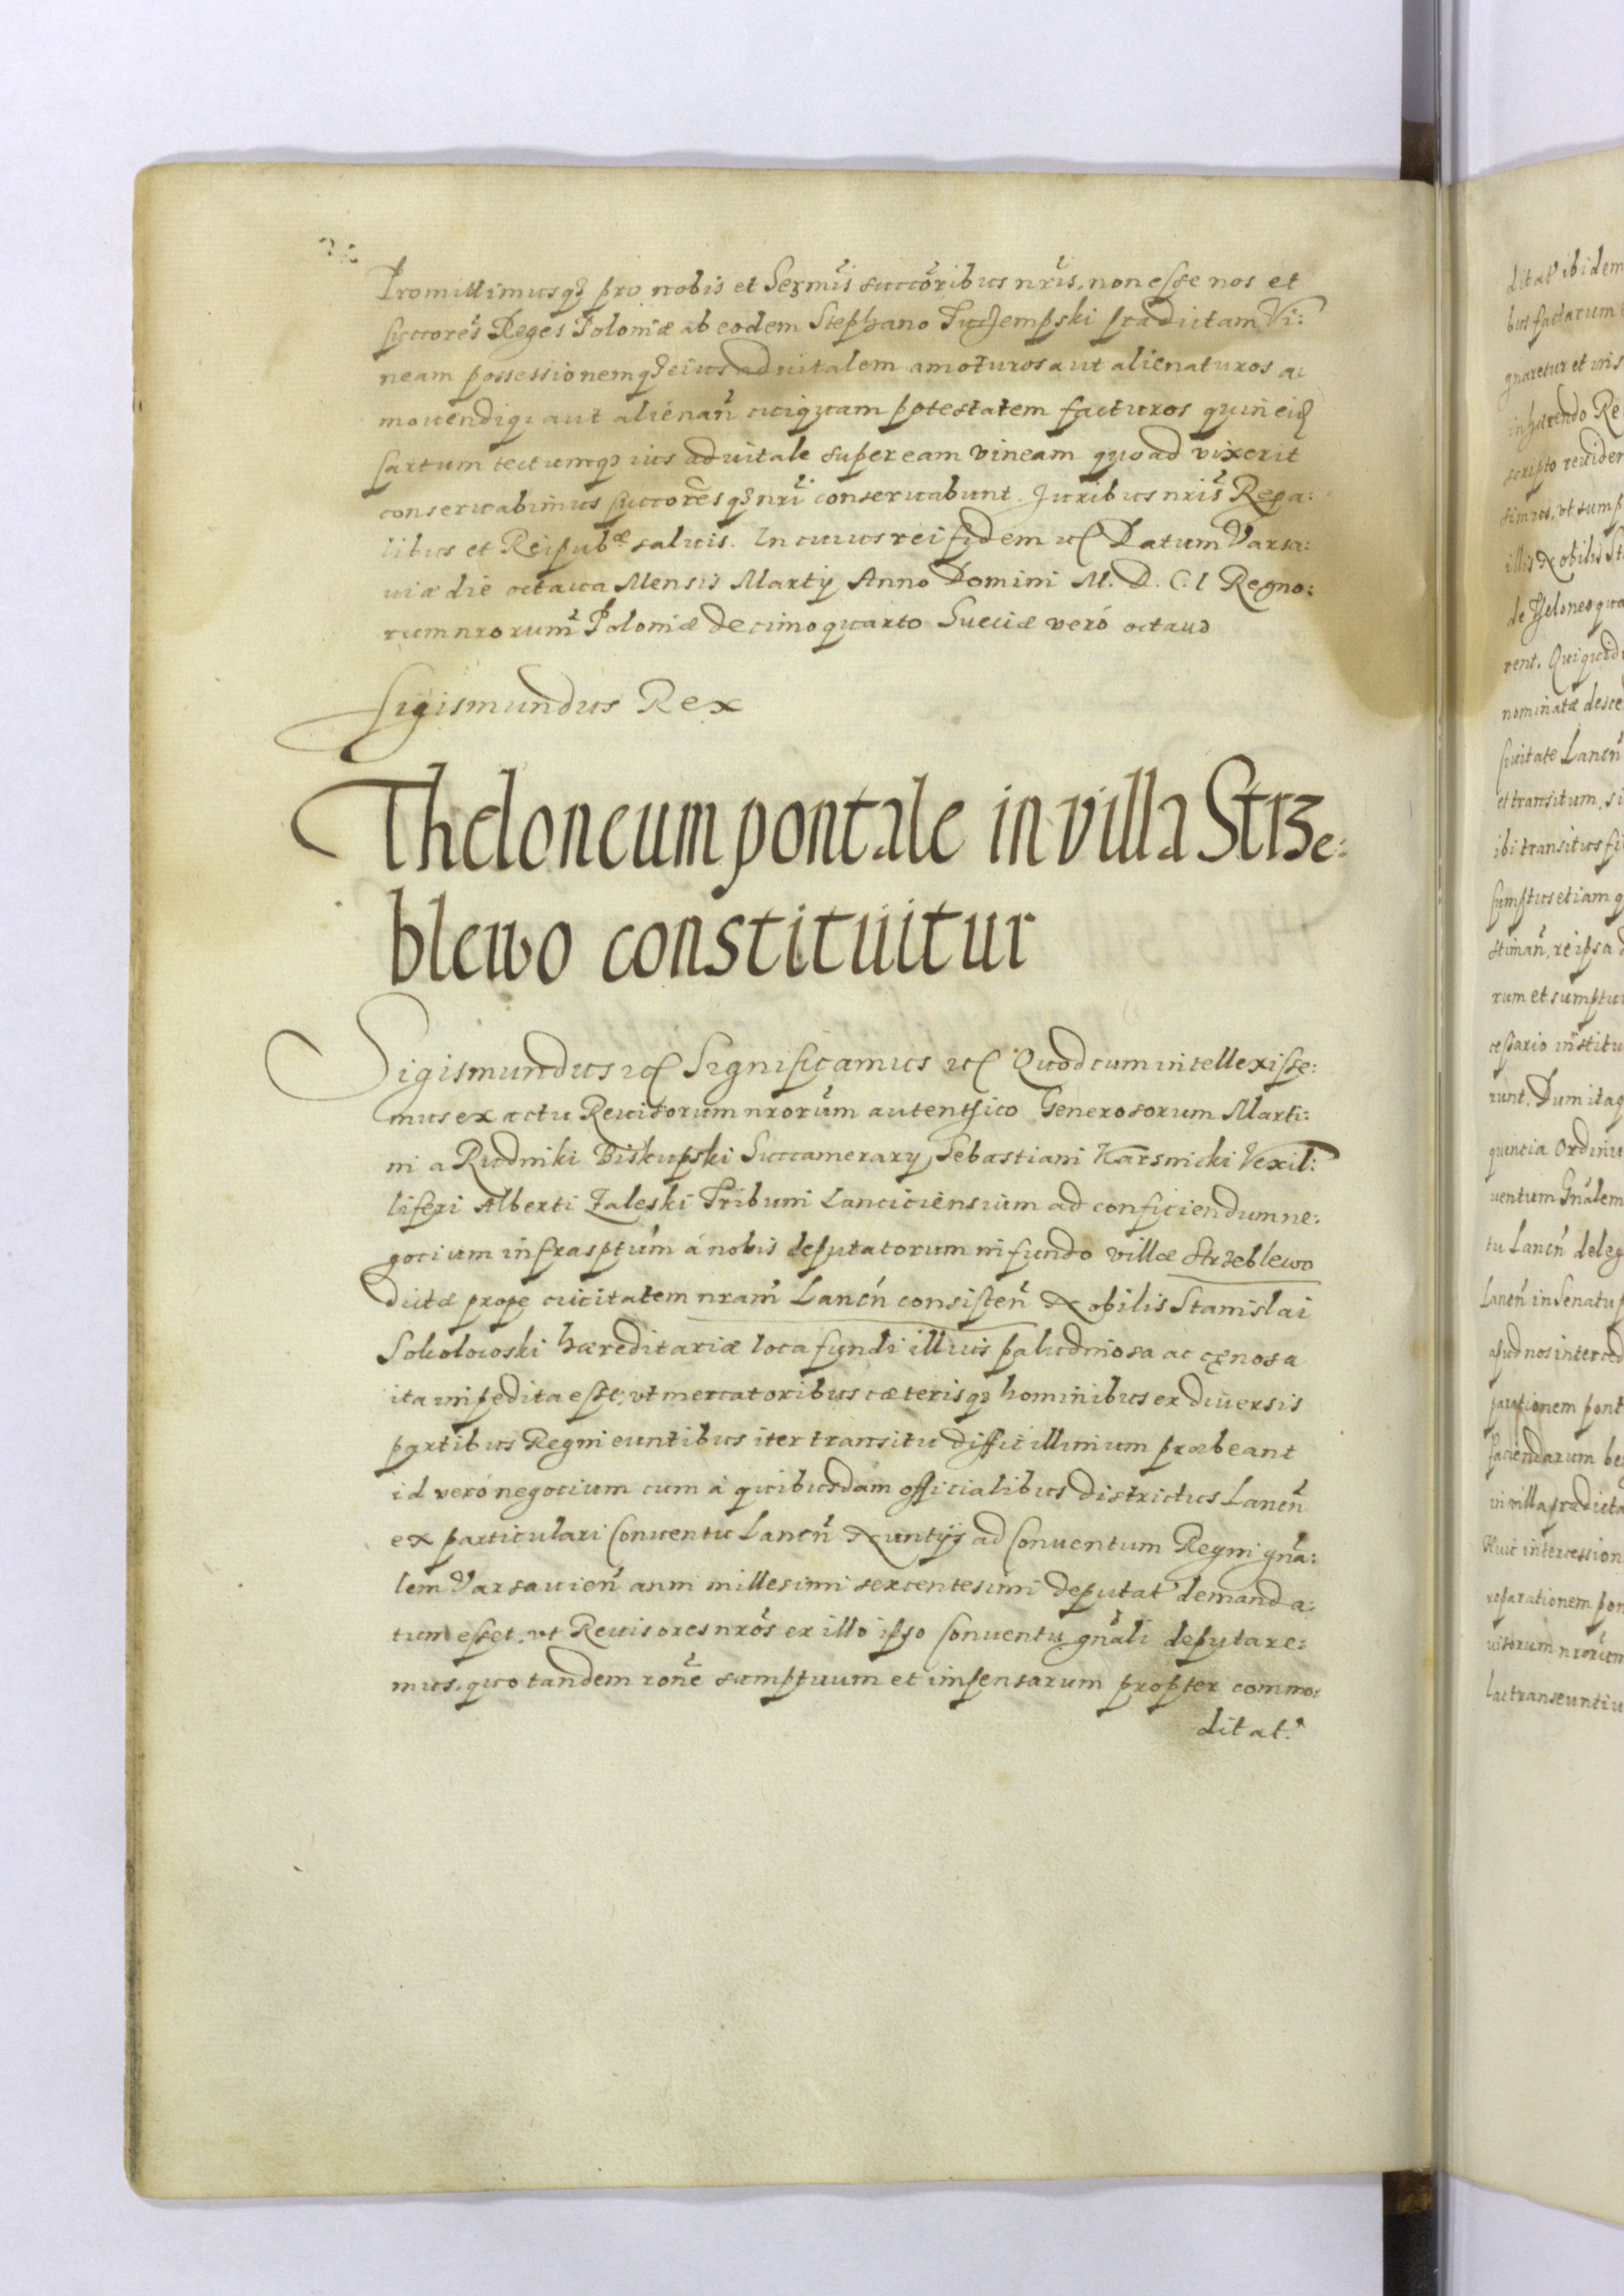 Promittimusq3 pro nobis et Sermis succoribus nris, non esse nos et
succores Reges Poloniæ ab eodem Stephano prædictam Vi:
neam possessionemq3 eius aduitalem amoturos aut alienaturos a:
mouendiq3 aut alienan cuiquam potestatem facturos quin eid
sartum tectumq3 ius aduitale super eam vineam quoad vixerit
conseruabimus succoresq3 nri conseruabunt. Juribus nris Rega:
libus et Reipubæ saluis. In cuius rei fidem etc Datum Varsa:
uiæ die octaua Mensis Martij Anno Domini M. D. C. I Regno:
rum nrorum Poloniæ decimoquarto Sueciæ veró octauo
Sigismundus Rex
Theloneum pontale in villa Strze:
blewo constituitur
Sigismundus etc Significamus etc Quod cum intellexisse:
mus ex actu Reuisorum nrorum autenthico Generosorum Marti:
ni a Rudniki Biskupski Succamerarij, Sebastiani Karsnicki Vexil:
liferi Alberti Zaleski Tribuni Lanciciensium ad conficiendum ne:
gocium infrasptum á nobis deputatorum in fundo villæ Strzeblewo
dictæ prope ciuitatem nram Lancn consisten Nobilis Stanislai
Sokolowski hæreditariæ loca fundi illius paludinosa ac cęnosa
ita impedita esse, vt mercatoribus cæterisq3 hominibus ex diuersis
partibus Regni euntibus iter transitu difficillimum præbeant
id veró negocium cum á quibusdam officialibus districtus Lancn
ex particulari Conuentu Lancn Nuntijs ad Conuentum Regni gna:
lem Varsauien anni millesimi sexcentesimi deputat demanda:
tum esset, vt Reuisores nros ex illo ipso Conuentu gnali deputare:
mus, quo tandem rone sumptuum et impensarum propter commo:
ditat.
ditat ibidem
bus factarum
gnaretur et vris
inhærendo Re
scripto reuider
simus, vt sump
illis Nobilis St
de Theloneo qua
rent. Qui quid
nominatæ desce
ciuitate Lancn
et transitum, si
ibi transitus fi
sumptus etiam q
stiman, reipsa d
rum et sumptu
cessario institu
runt. Dum itaq
quentia Ordinu
uentum Gnalem
tu Lancn deleg
Lancn in Senatu
apud nos interced
parationem pont
faciendarum be
in villa prædicta
Huic intercession
reparationem pon
uisorum nrorum
lac transeuntiu